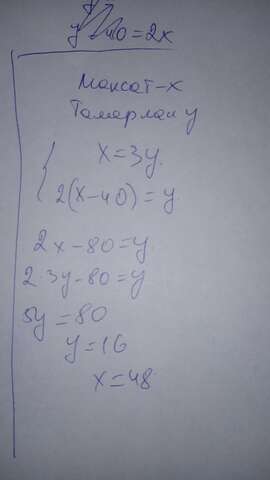 y 40=2x
Максат-x
Тамерлан y
x=3y
2(x-40)=y
2x-80=y
2·3y-80=y
5y=80
y=16
x=48